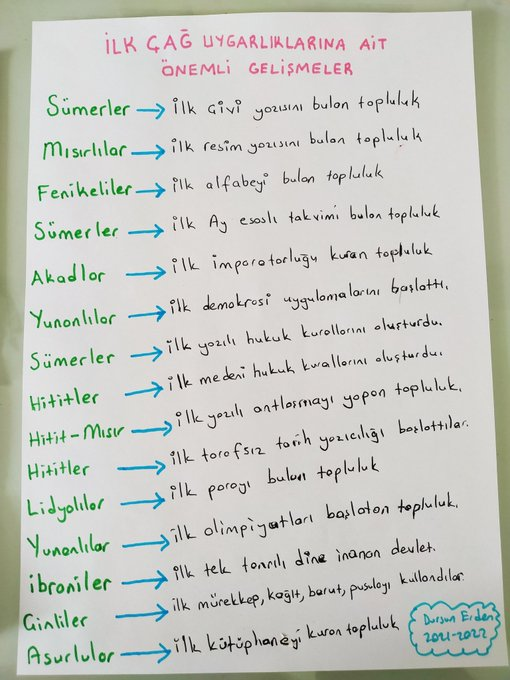 İLK ÇAĞ UYGARLIKLARINA AİT
ÖNEMLİ GELİŞMELER
Sümerler → ilk çivi yazısını bulan topluluk
Mısırlılar → ilk resim yazısını bulan topluluk
Fenikeliler → ilk alfabeyi bulan topluluk
Sümerler → ilk Ay esaslı takvimi bulan topluluk
Akadlar → ilk imparatorluğu kuran topluluk
Yunanlılar → ilk demokrasi uygulamalarını başlattı.
Sümerler → ilk yazılı hukuk kurallarını oluşturdu.
Hititler → ilk medeni hukuk kurallarını oluşturdu.
Hitit-Mısır → ilk yazılı antlaşmayı yapan topluluk.
Hititler → ilk tarafsız tarih yazıcılığı başlattılar.
Lidyalılar → ilk parayı bulan topluluk
Yunanlılar → ilk olimpiyatları başlatan topluluk.
ibraniler → ilk tek tanrılı dine inanan devlet.
Çinliler → ilk mürekkep, kağıt, barut, pusulayı kullandılar.
Asurlular → ilk kütüphaneyi kuran topluluk
Dursun Erden
2021-2022